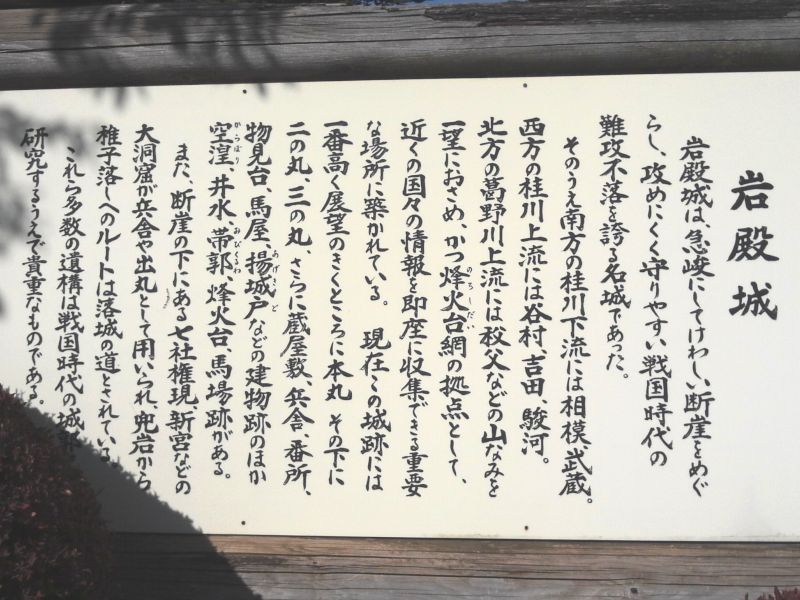 岩殿城
岩殿城は、急峻にしてけわしい断崖をめぐ
らし、攻めにくく守りやすい戦国時代の
難攻不落を誇る名城であった。
そのうえ南方の桂川下流には相模、武蔵。
西方の桂川上流には谷村、吉田、駿河。
北方の葛野川上流には秩父などの山なみを
一望におさめ、かつ烽火台網の拠点として、
のろしだい
近くの国々の情報を即座に収集できる重要
な場所に築かれている。 現在この城跡には
一番高く展望のきくところに本丸 その下に
二の丸、三の丸、さらに蔵屋敷、兵舎、番所、
物見台、馬屋、揚城戸などの建物跡のほか
あげきど
空湟、井水、帯郭、烽火台、馬場跡がある。
からぼり
おびくるわ
また、断崖の下にある七社権現 新宮などの
大洞窟が兵舎や出丸として用いられ、兜岩から
稚子落しへのルートは落城の道とされている。
これら多数の遺構は戦国時代の城郭
研究するうえで貴重なものである。